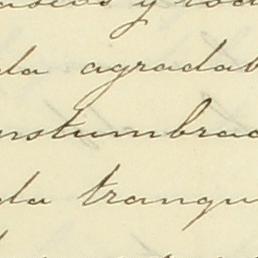 aseos y tod
da agradab
nstumbrad
da tranqu